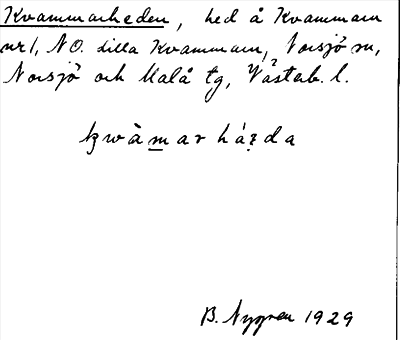 Kvammarheden, hed å Kvammarn
nr 1, NO. lilla Kvammarn, Norsjö sn,
Norsjö och Malå tg, Västerb. l.
kwàmarházda
B. Nygren 1929